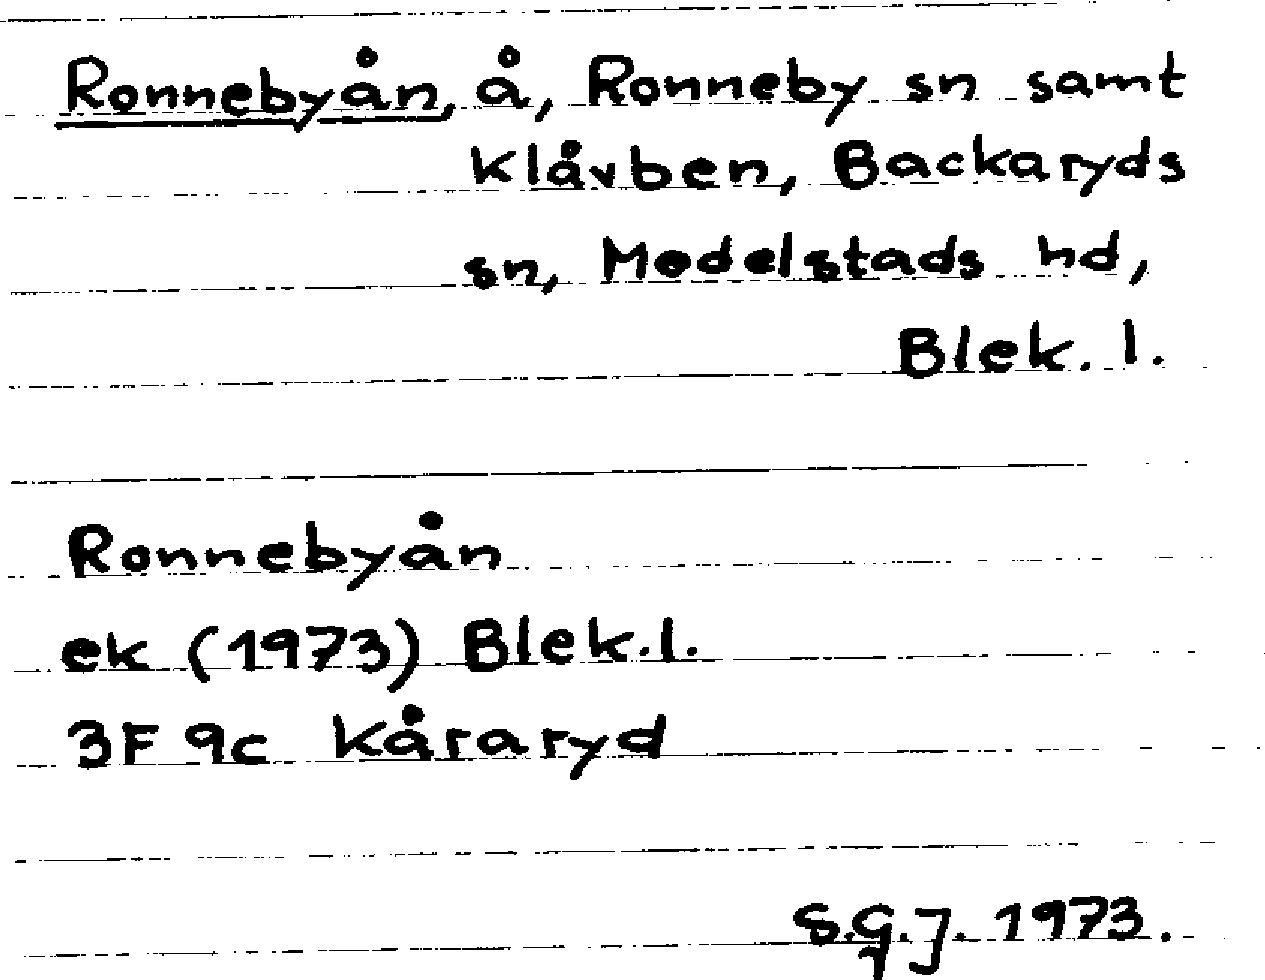 Ronnebyån, å, Ronneby sn samt
Klåvben, Backaryds
sn, Medelstads hd,
Blek. l.
Ronnebyån
ek (1973) Blek. l.
3F 9c Kåraryd
S.G.J. 1973.